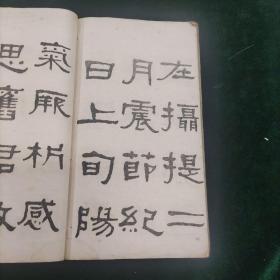 在攝提二
月震節紀
日上旬陽
氣厥析感
思舊君故